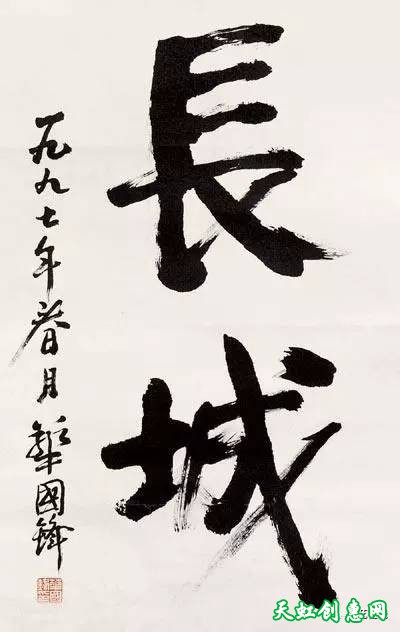 長城
一九九七年春月 華國鋒
天虹创意网